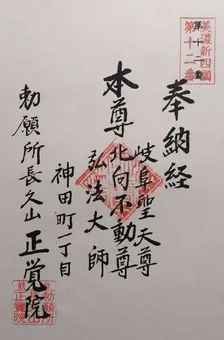 美濃新四國
第十二番
奉納経
岐阜聖天尊
本尊北向不動尊
弘法大師
神田町一丁目
勅願所長久山正覚院